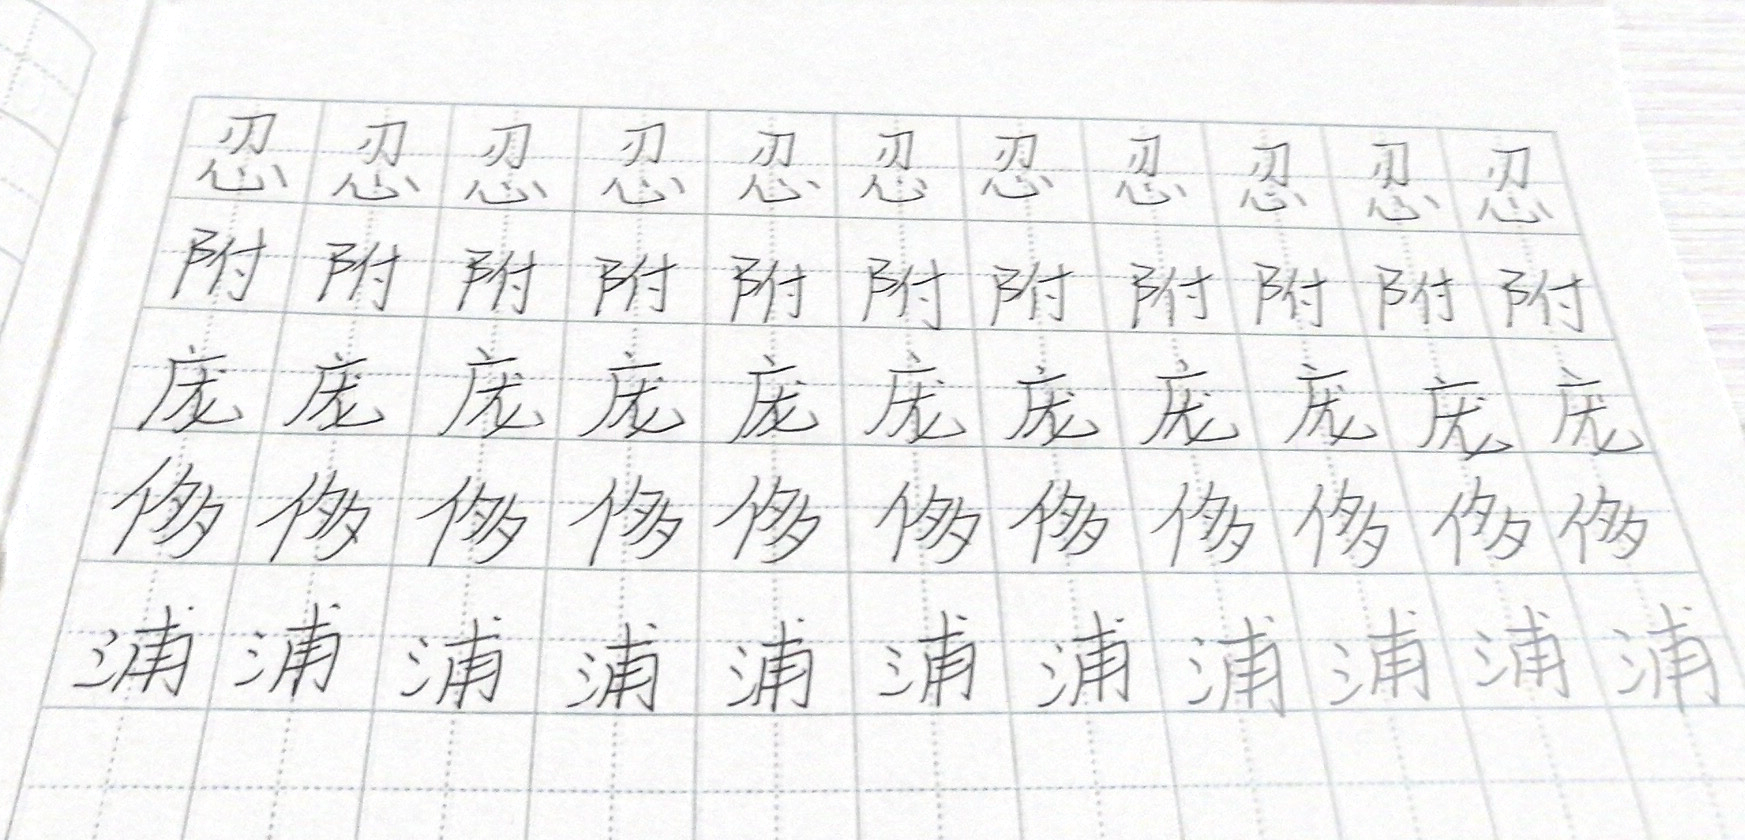 忍忍忍忍忍忍忍忍忍忍忍
附附附附附附附附附附附
庞庞庞庞庞庞庞庞庞庞庞
侈侈侈侈侈侈侈侈侈侈侈
浦浦浦浦浦浦浦浦浦浦浦